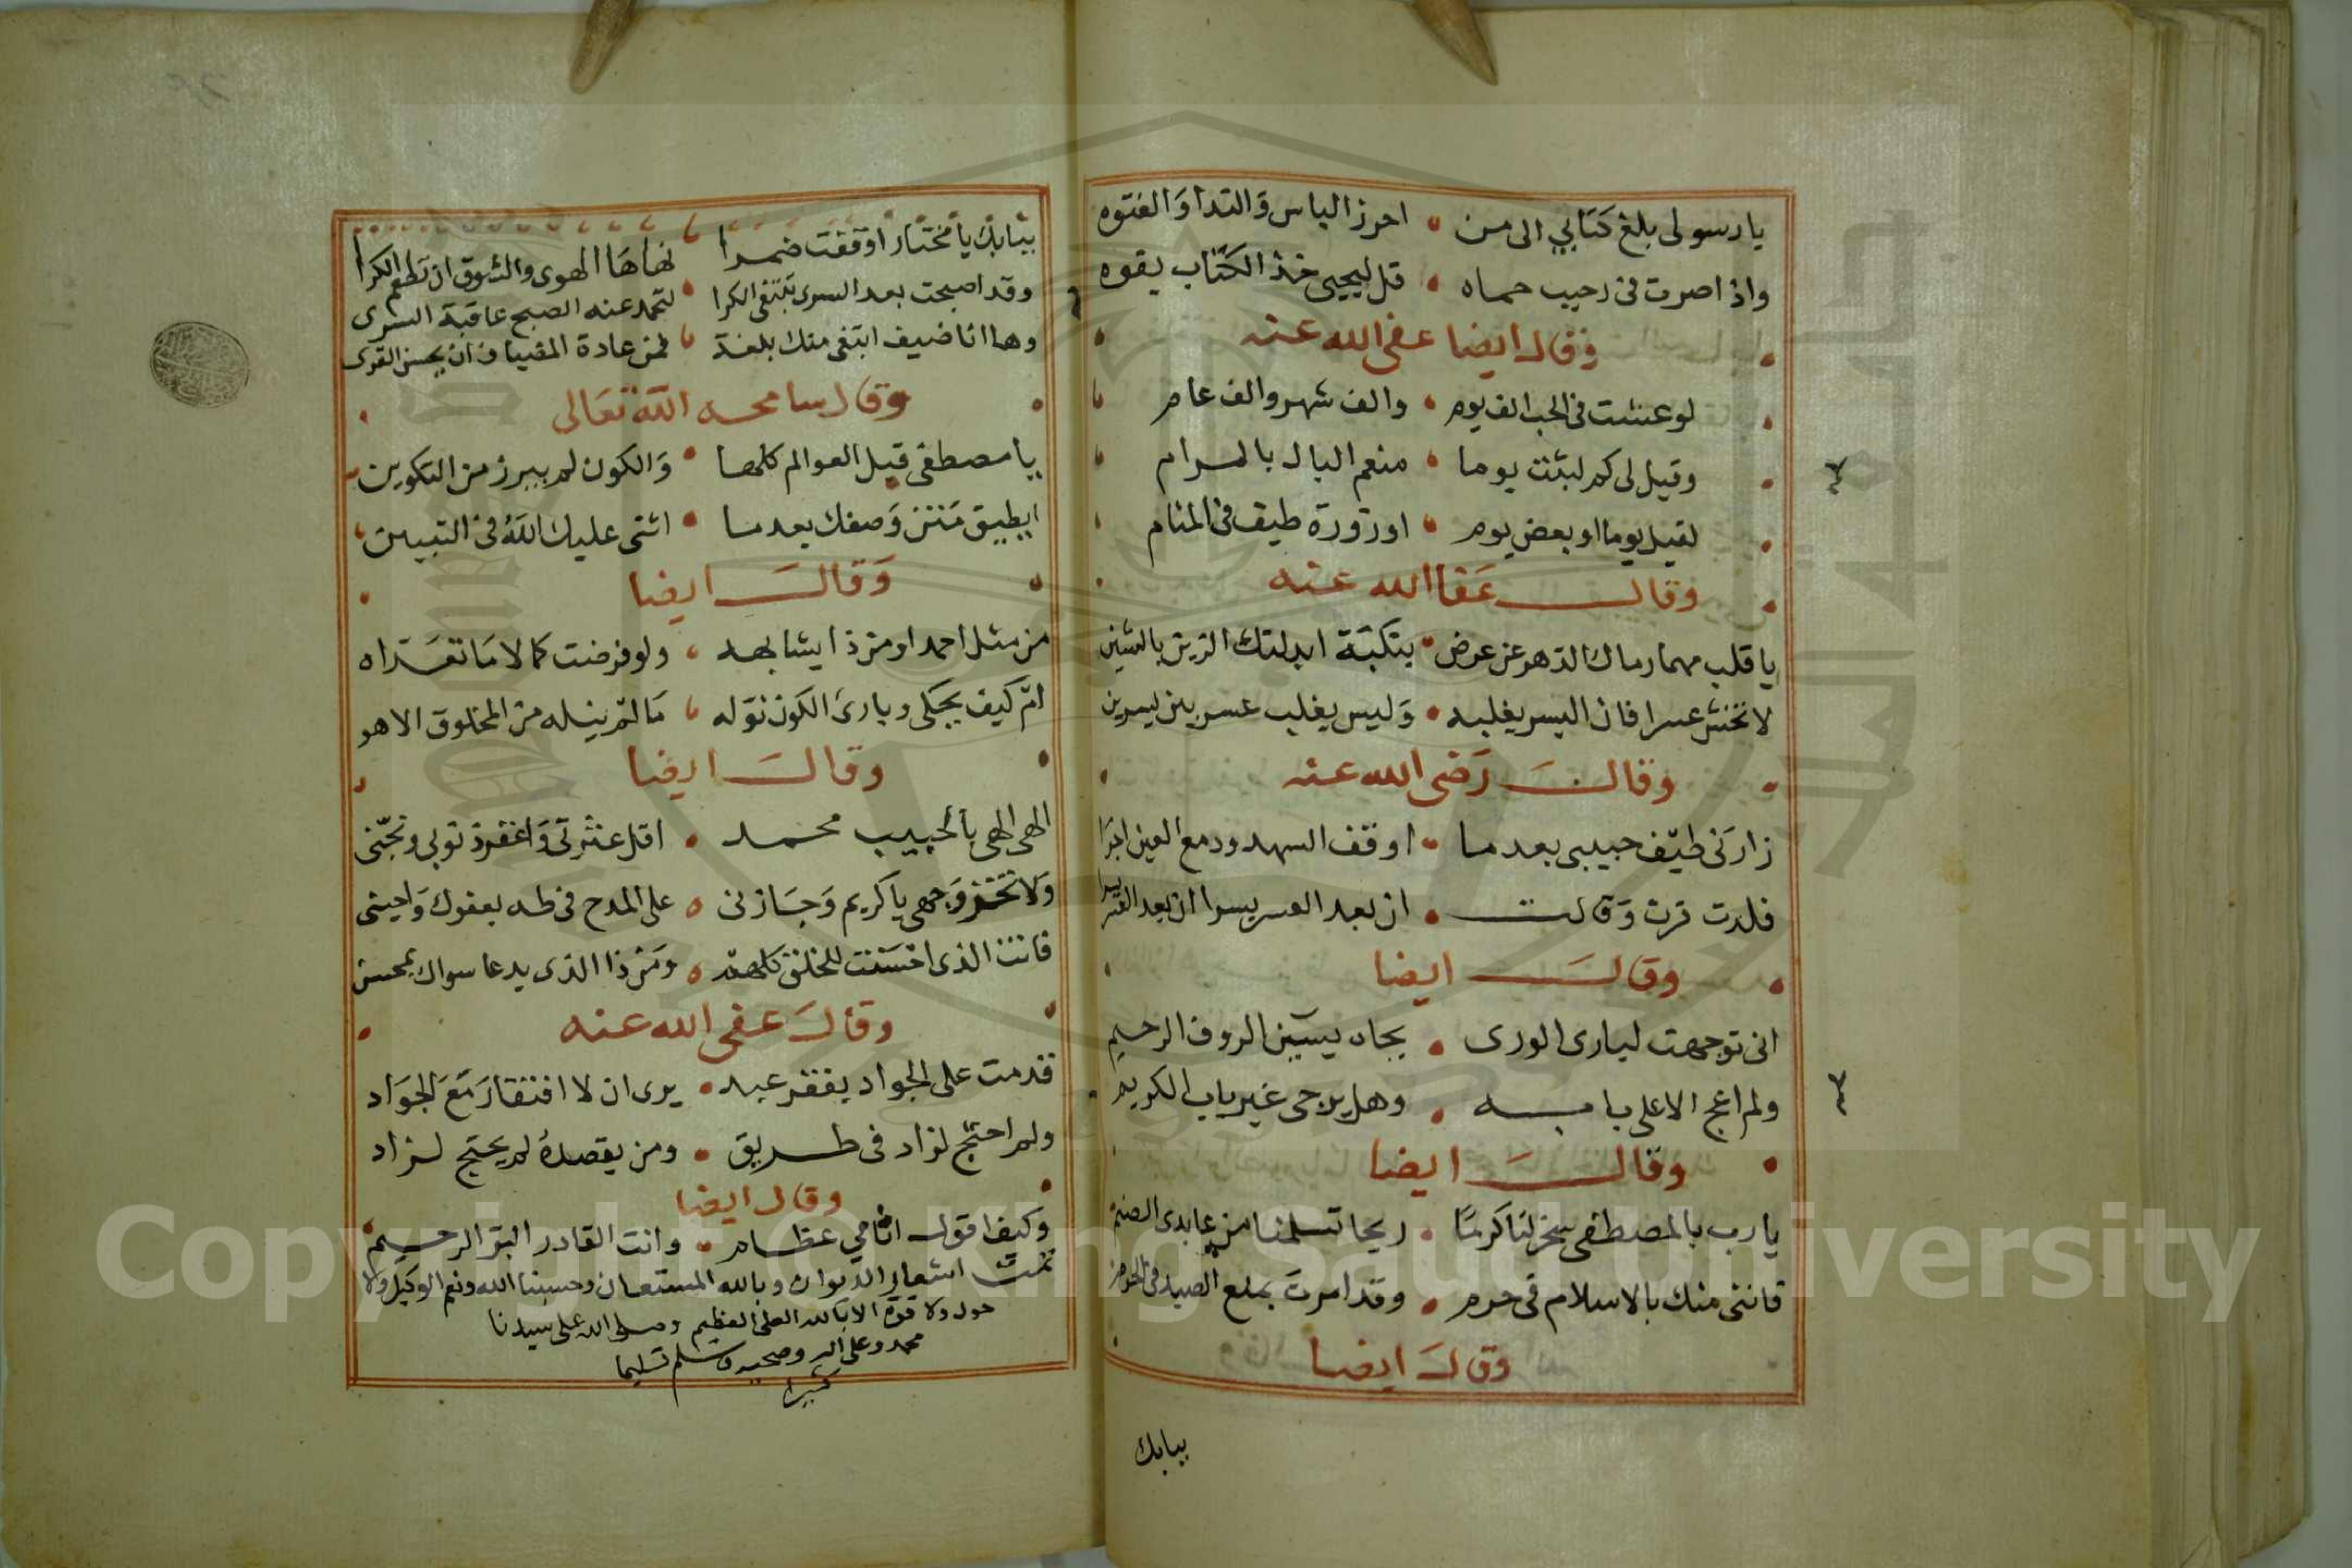 يا رسولى بلغ كتابي الى من • احرز الباس والندا والفتوه
واذا صرت فى رحيب حماه • قل ليحيى خذ الكتاب بقوه
وقال ايضا عفى الله عنه
لو عشت فى الحب الف يوم • والف شهر والف عام
وقيل لى كم لبثت يوما • منعم البال بالمرام
لقيل يوما او بعض يوم • او زورة طيف فى المنام
وقال عفا الله عنه
يا قلب مهما رماك الدهر عن عرض • بنكبة ابدلتك الزين بالشين
لا تخش عسرا فان اليسر يغلبه • وليس يغلب عسر بين يسرين
وقال رضى الله عنه
زارنى طيف حبيبى بعدما • اوقف السهد ودمع العين اجرا
فلدت قرت وقالت • ان بعد العسر يسرا ان بعد العسر يسرا
وقال ايضا
انى توجهت لبارى الورى • بجاه يسين الروف الرحيم
ولم اعج الا على بابه • وهل يرجى غير باب الكريم
وقال ايضا
يا رب بالمصطفى سخر لنا كرما • ريحا تسلمنا من عابدى الصنم
فانني منك بالاسلام فى حرم • وقد امرت بمنع الصيد فى الحرم
وقال ايضا
ببابك
ببابك يا مختار اوقفت ضمرا • نهاها الهوى والشوق ان تطعم الكرا
وقد اصبحت بعد السرى تبتغى الكرا • لتحمد عنه الصبح عاقبة السرى
وها انا ضيف ابتغى منك بلغة • فمن عادة المضياف ان يحسن القرى
وقال سامحه الله تعالى
يا مصطفى قبل العوالم كلها • والكون لم يبرز من التكوين
ايطيق مثنن وصفك بعدما • اثنى عليك الله فى التبيين
وقال ايضا
من مثل احمد او من ذا يشابهه • ولو فرضت كمالا ما تعداه
ام كيف يحكى وبارئ الكون نوله • ما لم ينله من المخلوق الا هو
وقال ايضا
الهى الهى بالحبيب محمد • اقل عثرتى واغفر ذنوبى ونجنى
ولا تخز وجهى يا كريم وجازنى • على المدح فى طه بعفوك واحينى
فانت الذى احسنت للخلق كلهم • ومن ذا الذى يدعا سواك بمحسن
وقال عفى الله عنه
قدمت على الجواد بفقر عبد • يرى ان لا افتقار مع الجواد
ولم احتج لزاد فى طريق • ومن يقصده لم يحتج لزاد
وقال ايضا
وكيف اقول اثامي عظام • وانت القادر البر الرحيم
تمت اشعار الديوان وبالله المستعان وحسبنا الله ونعم الوكيل ولا
حول ولا قوة الا بالله العلى العظيم وصلى الله على سيدنا
محمد وعلى اله وصحبه وسلم تسليما
كثيرا
Copyright © King Saud University